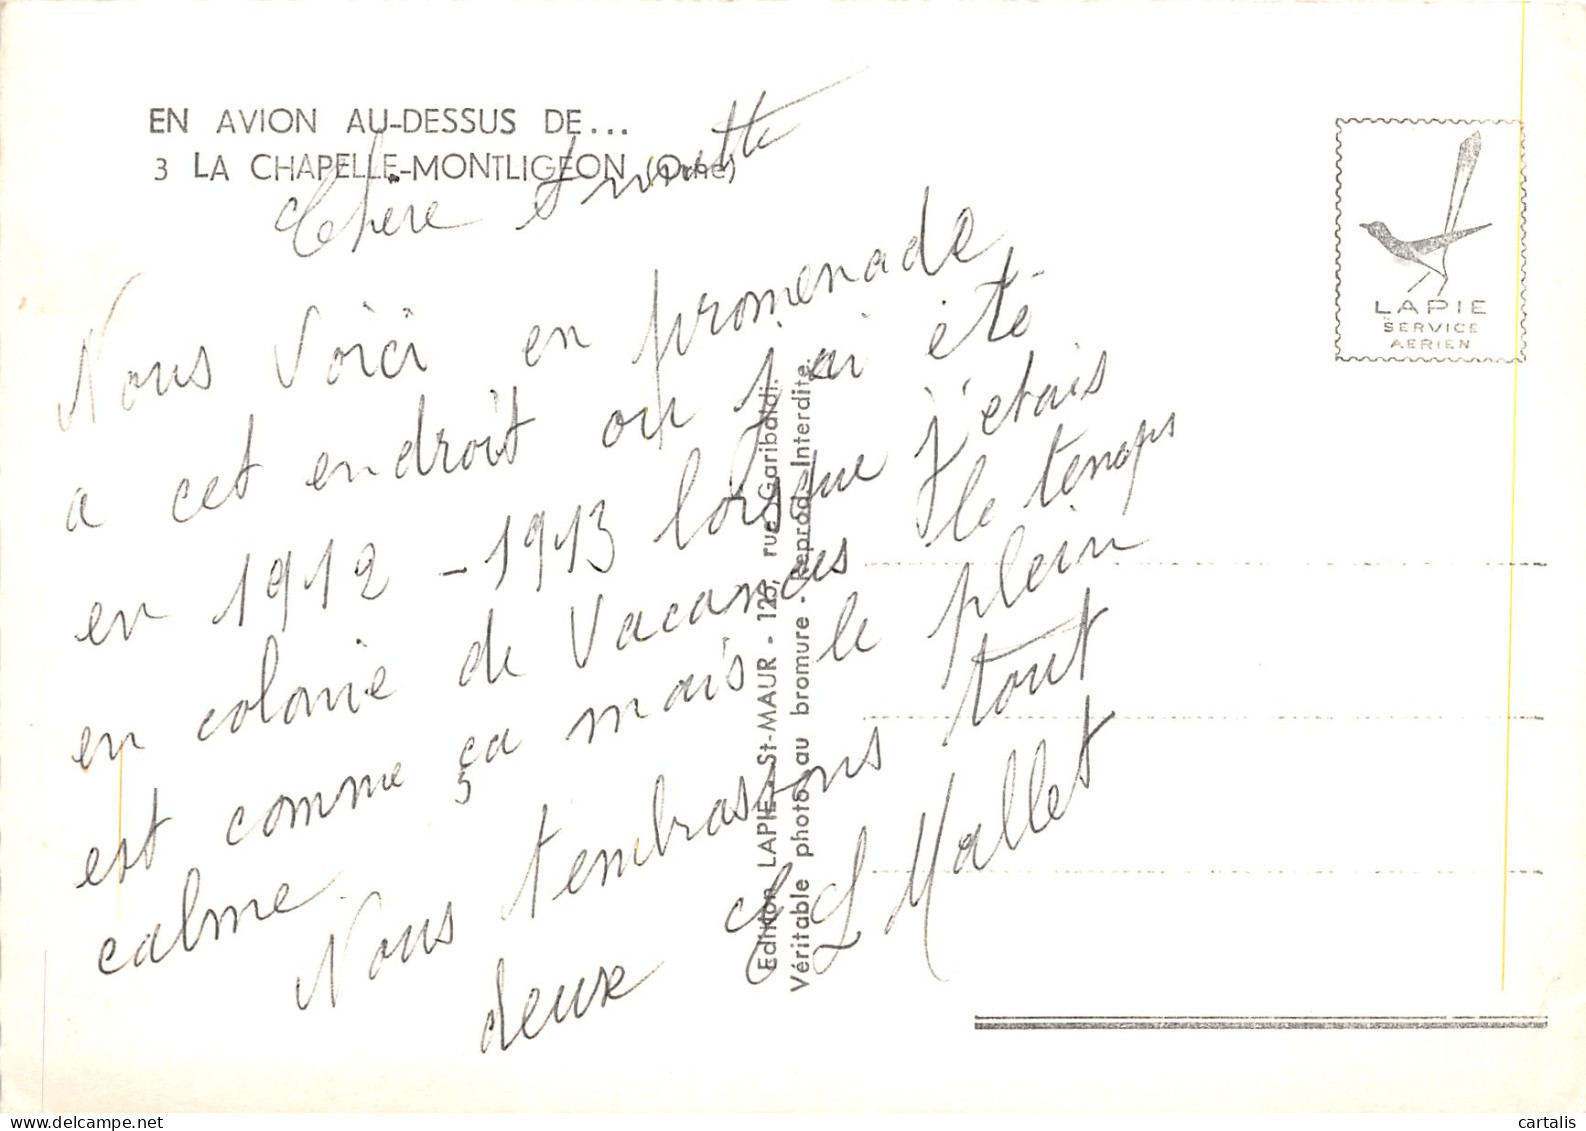 EN AVION AU-DESSUS DE...
3 LA CHAPELLE-MONTLIGEON (Orne)
Chère
Nous voici en promenade
a cet endroit ou j'ai été
en 1912 - 1913 lorsque j'etais
en colonie de vacances le temps
est comme ça mais le plein
calme.
Nous t'embrassons tout
deux
L Mallet
Edition LAPIE - St-MAUR - 128, rue Garibaldi.
Véritable photo au bromure - Reprod. Interdite.
LAPIE
SERVICE
AERIEN
cartalis